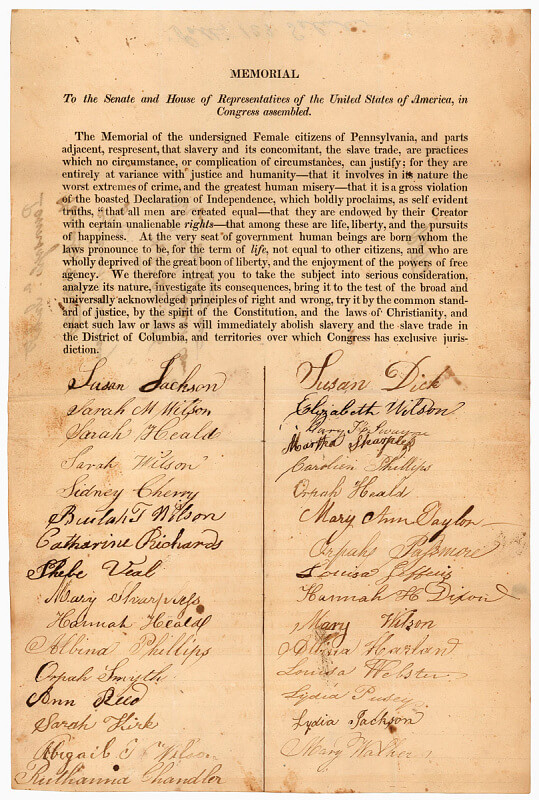 MEMORIAL
To the Senate and House of Representatives of the United States of America, in
Congress assembled.
The Memorial of the undersigned Female citizens of Pennsylvania, and parts
adjacent, respresent, that slavery and its concomitant, the slave trade, are practices
which no circumstance, or complication of circumstances, can justify; for they are
entirely at variance with justice and humanity—that it involves in its nature the
worst extremes of crime, and the greatest human misery—that it is a gross violation
of the boasted Declaration of Independence, which boldly proclaims, as self evident
truths, "that all men are created equal—that they are endowed by their Creator
with certain unalienable rights—that among these are life, liberty, and the pursuits
of happiness. At the very seat of government human beings are born whom the
laws pronounce to be, for the term of life, not equal to other citizens, and who are
wholly deprived of the great boon of liberty, and the enjoyment of the powers of free
agency. We therefore intreat you to take the subject into serious consideration,
analyze its nature, investigate its consequences, bring it to the test of the broad and
universally acknowledged principles of right and wrong, try it by the common stand-
ard of justice, by the spirit of the Constitution, and the laws of Christianity, and
enact such law or laws as will immediately abolish slavery and the slave trade in
the District of Columbia, and territories over which Congress has exclusive juris-
diction.
Susan Jackson
Sarah M Wilson
Sarah Heald
Sarah Wilson
Sidney Cherry
Beulah T Wilson
Catharine Richards
Phebe Veal
Mary Sharpless
Hannah Heald
Albina Phillips
Orpah Smyth
Ann Reed
Sarah Kirk
Abigail Wilson
Ruthanna Chandler
Susan Dick
Elizabeth Wilson
Mary
Martha Sharpless
Carolien Phillips
Orpah Heald
Mary Ann Taylor
Orpah Passmore
Louisa
Hannah H Dixon
Mary Wilson
Harlan
Louisa Webster
Lydia Pusey
Lydia Jackson
Mary Walker